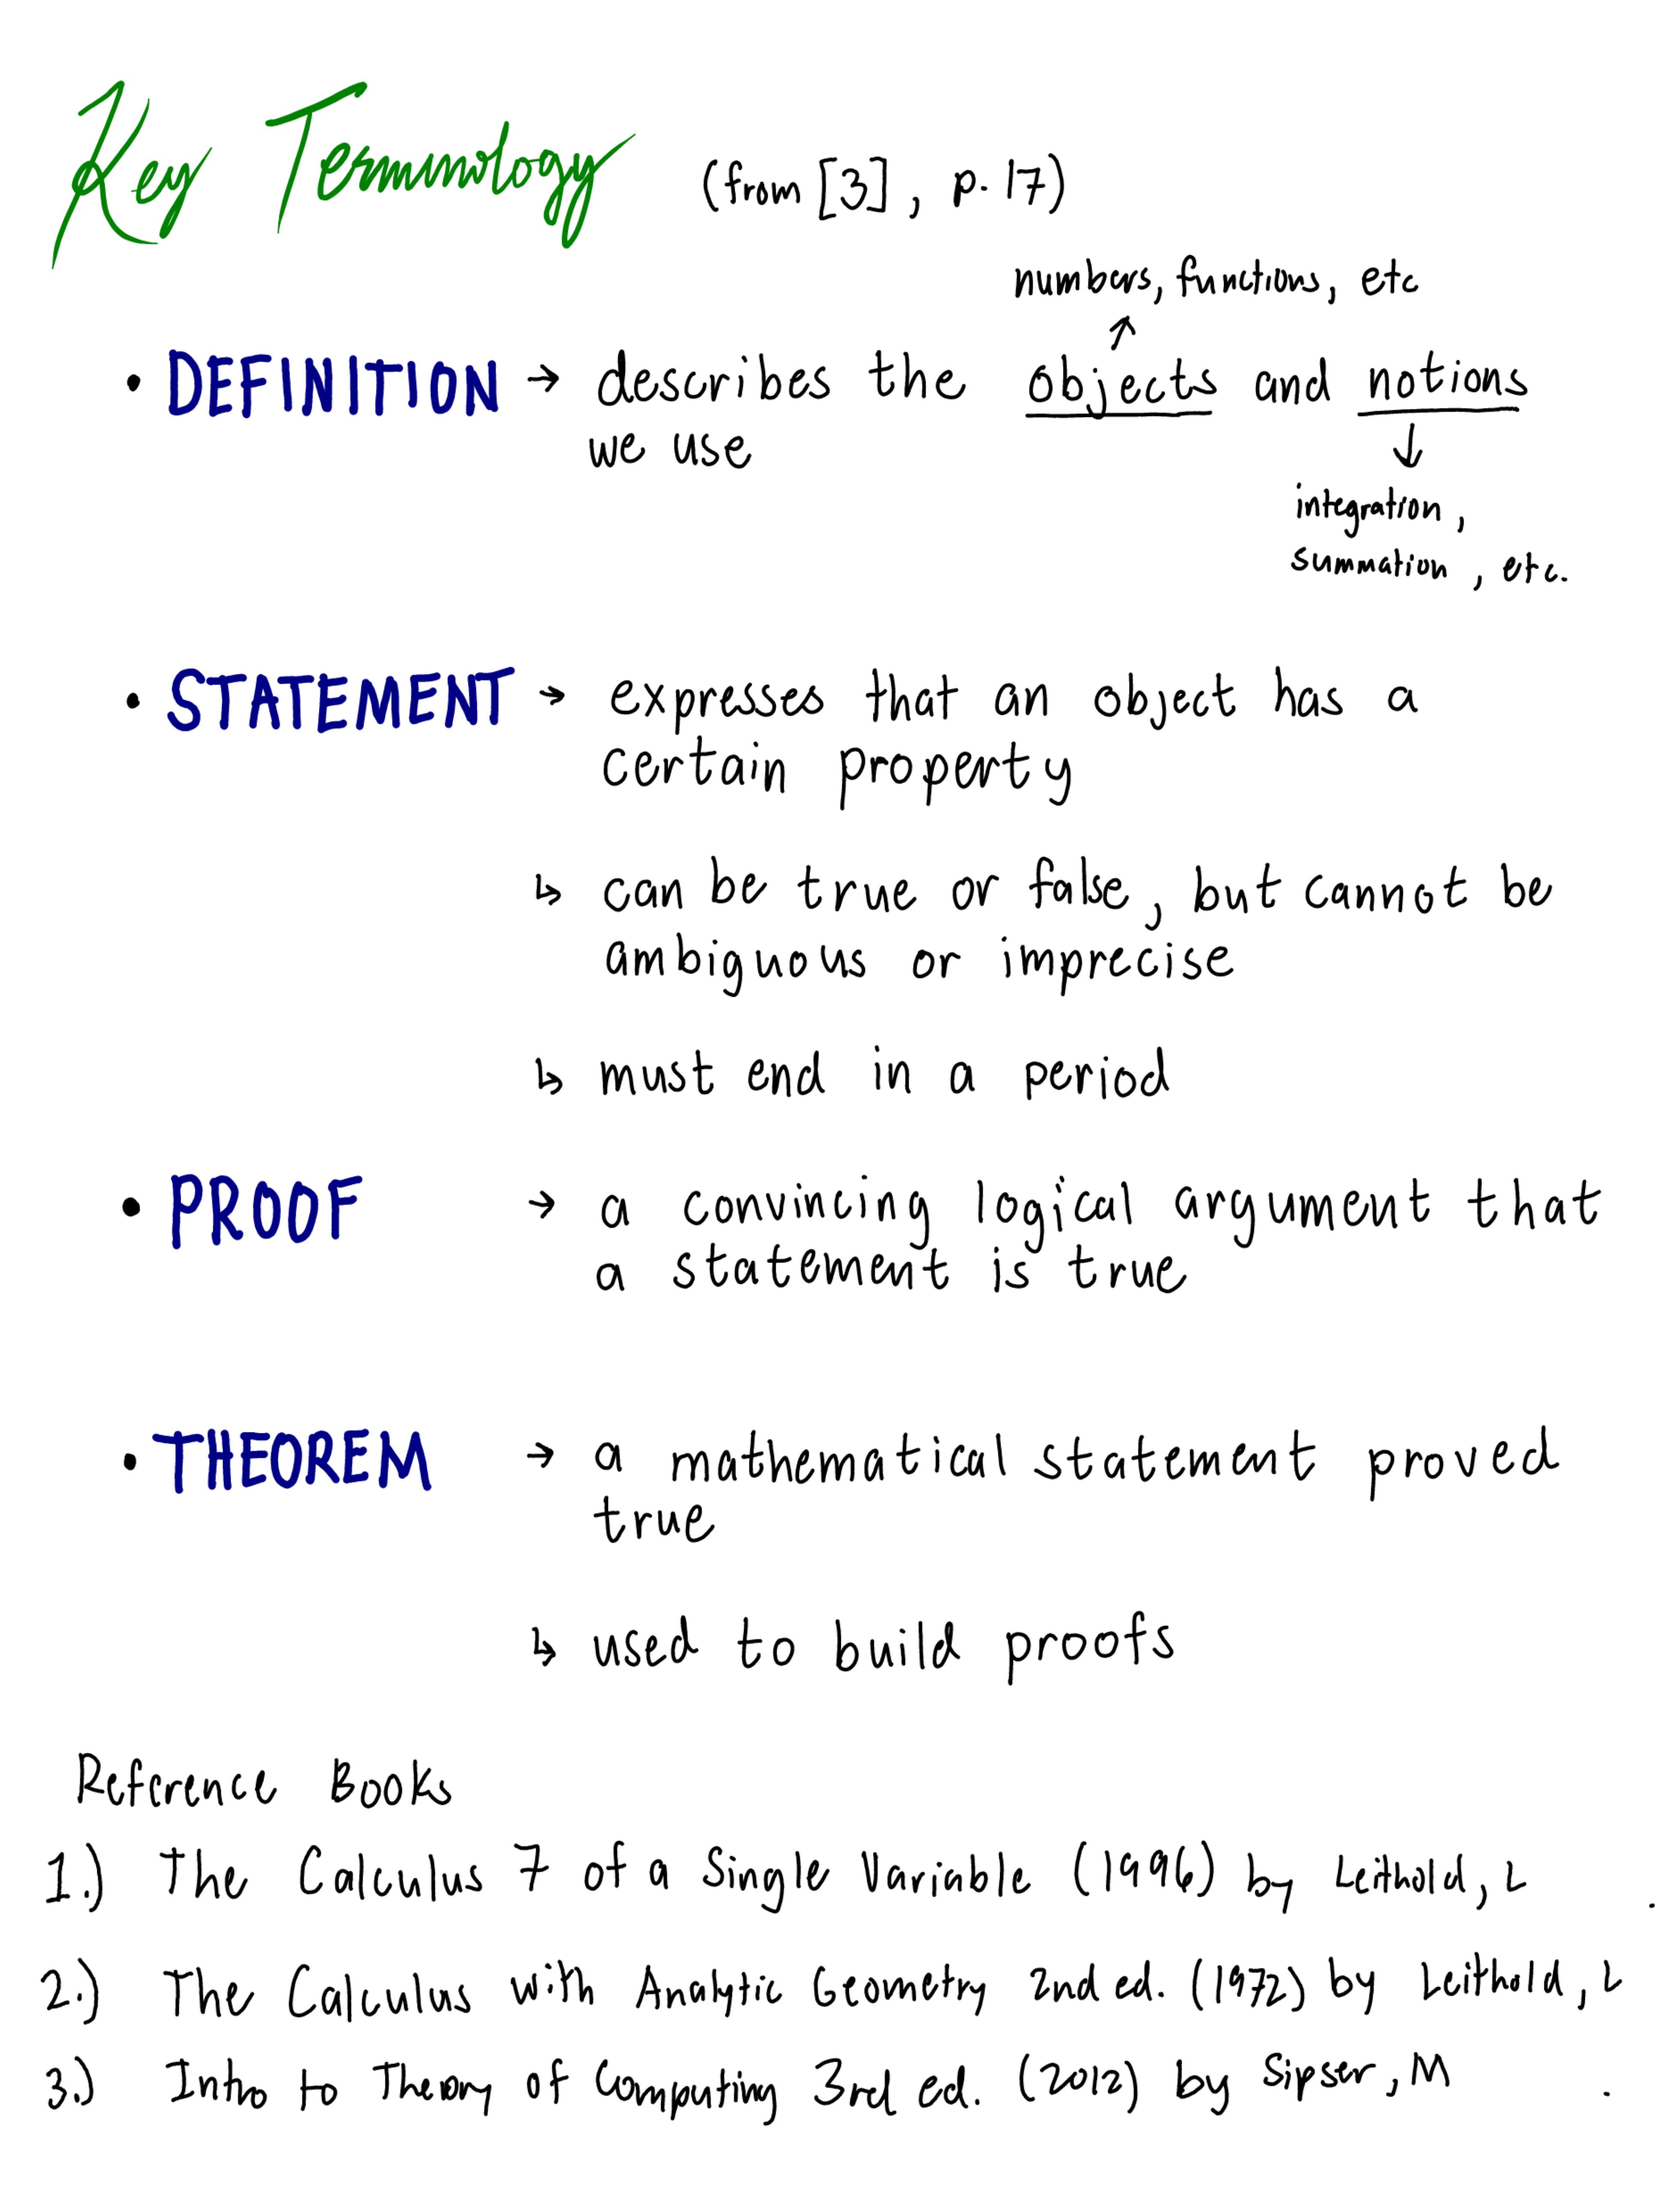 Key Terminology (from [3], p. 17)
numbers, functions, etc
↑
• DEFINITION → describes the objects and notions
we use
↓
integration,
summation, etc.
• STATEMENT → expresses that an object has a
certain property
↳ can be true or false, but cannot be
ambiguous or imprecise
↳ must end in a period
• PROOF → a convincing logical argument that
a statement is true
• THEOREM → a mathematical statement proved
true
↳ used to build proofs
Reference Books
1.) The Calculus 7 of a Single Variable (1996) by Leithold, L
2.) The Calculus with Analytic Geometry 2nd ed. (1972) by Leithold, L
3.) Intro to Theory of Computing 3rd ed. (2012) by Sipser, M